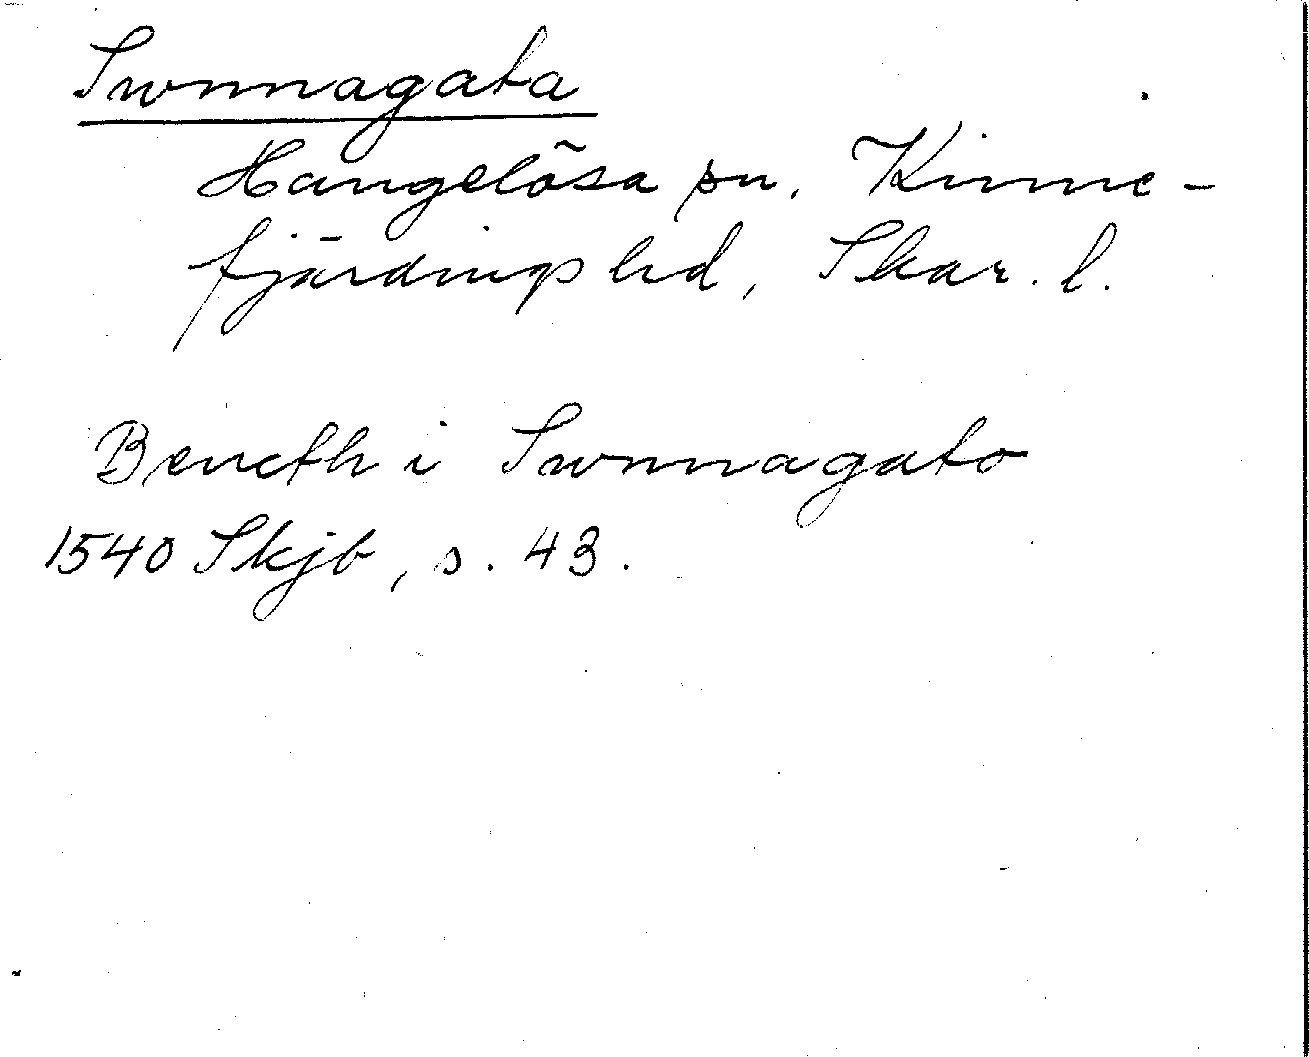 Swnnagata
Hangelösa sn. Kinne-
fjärdings hd, Skar. l.
Bencth i Swnnagato
1540 Skjb, s. 43.